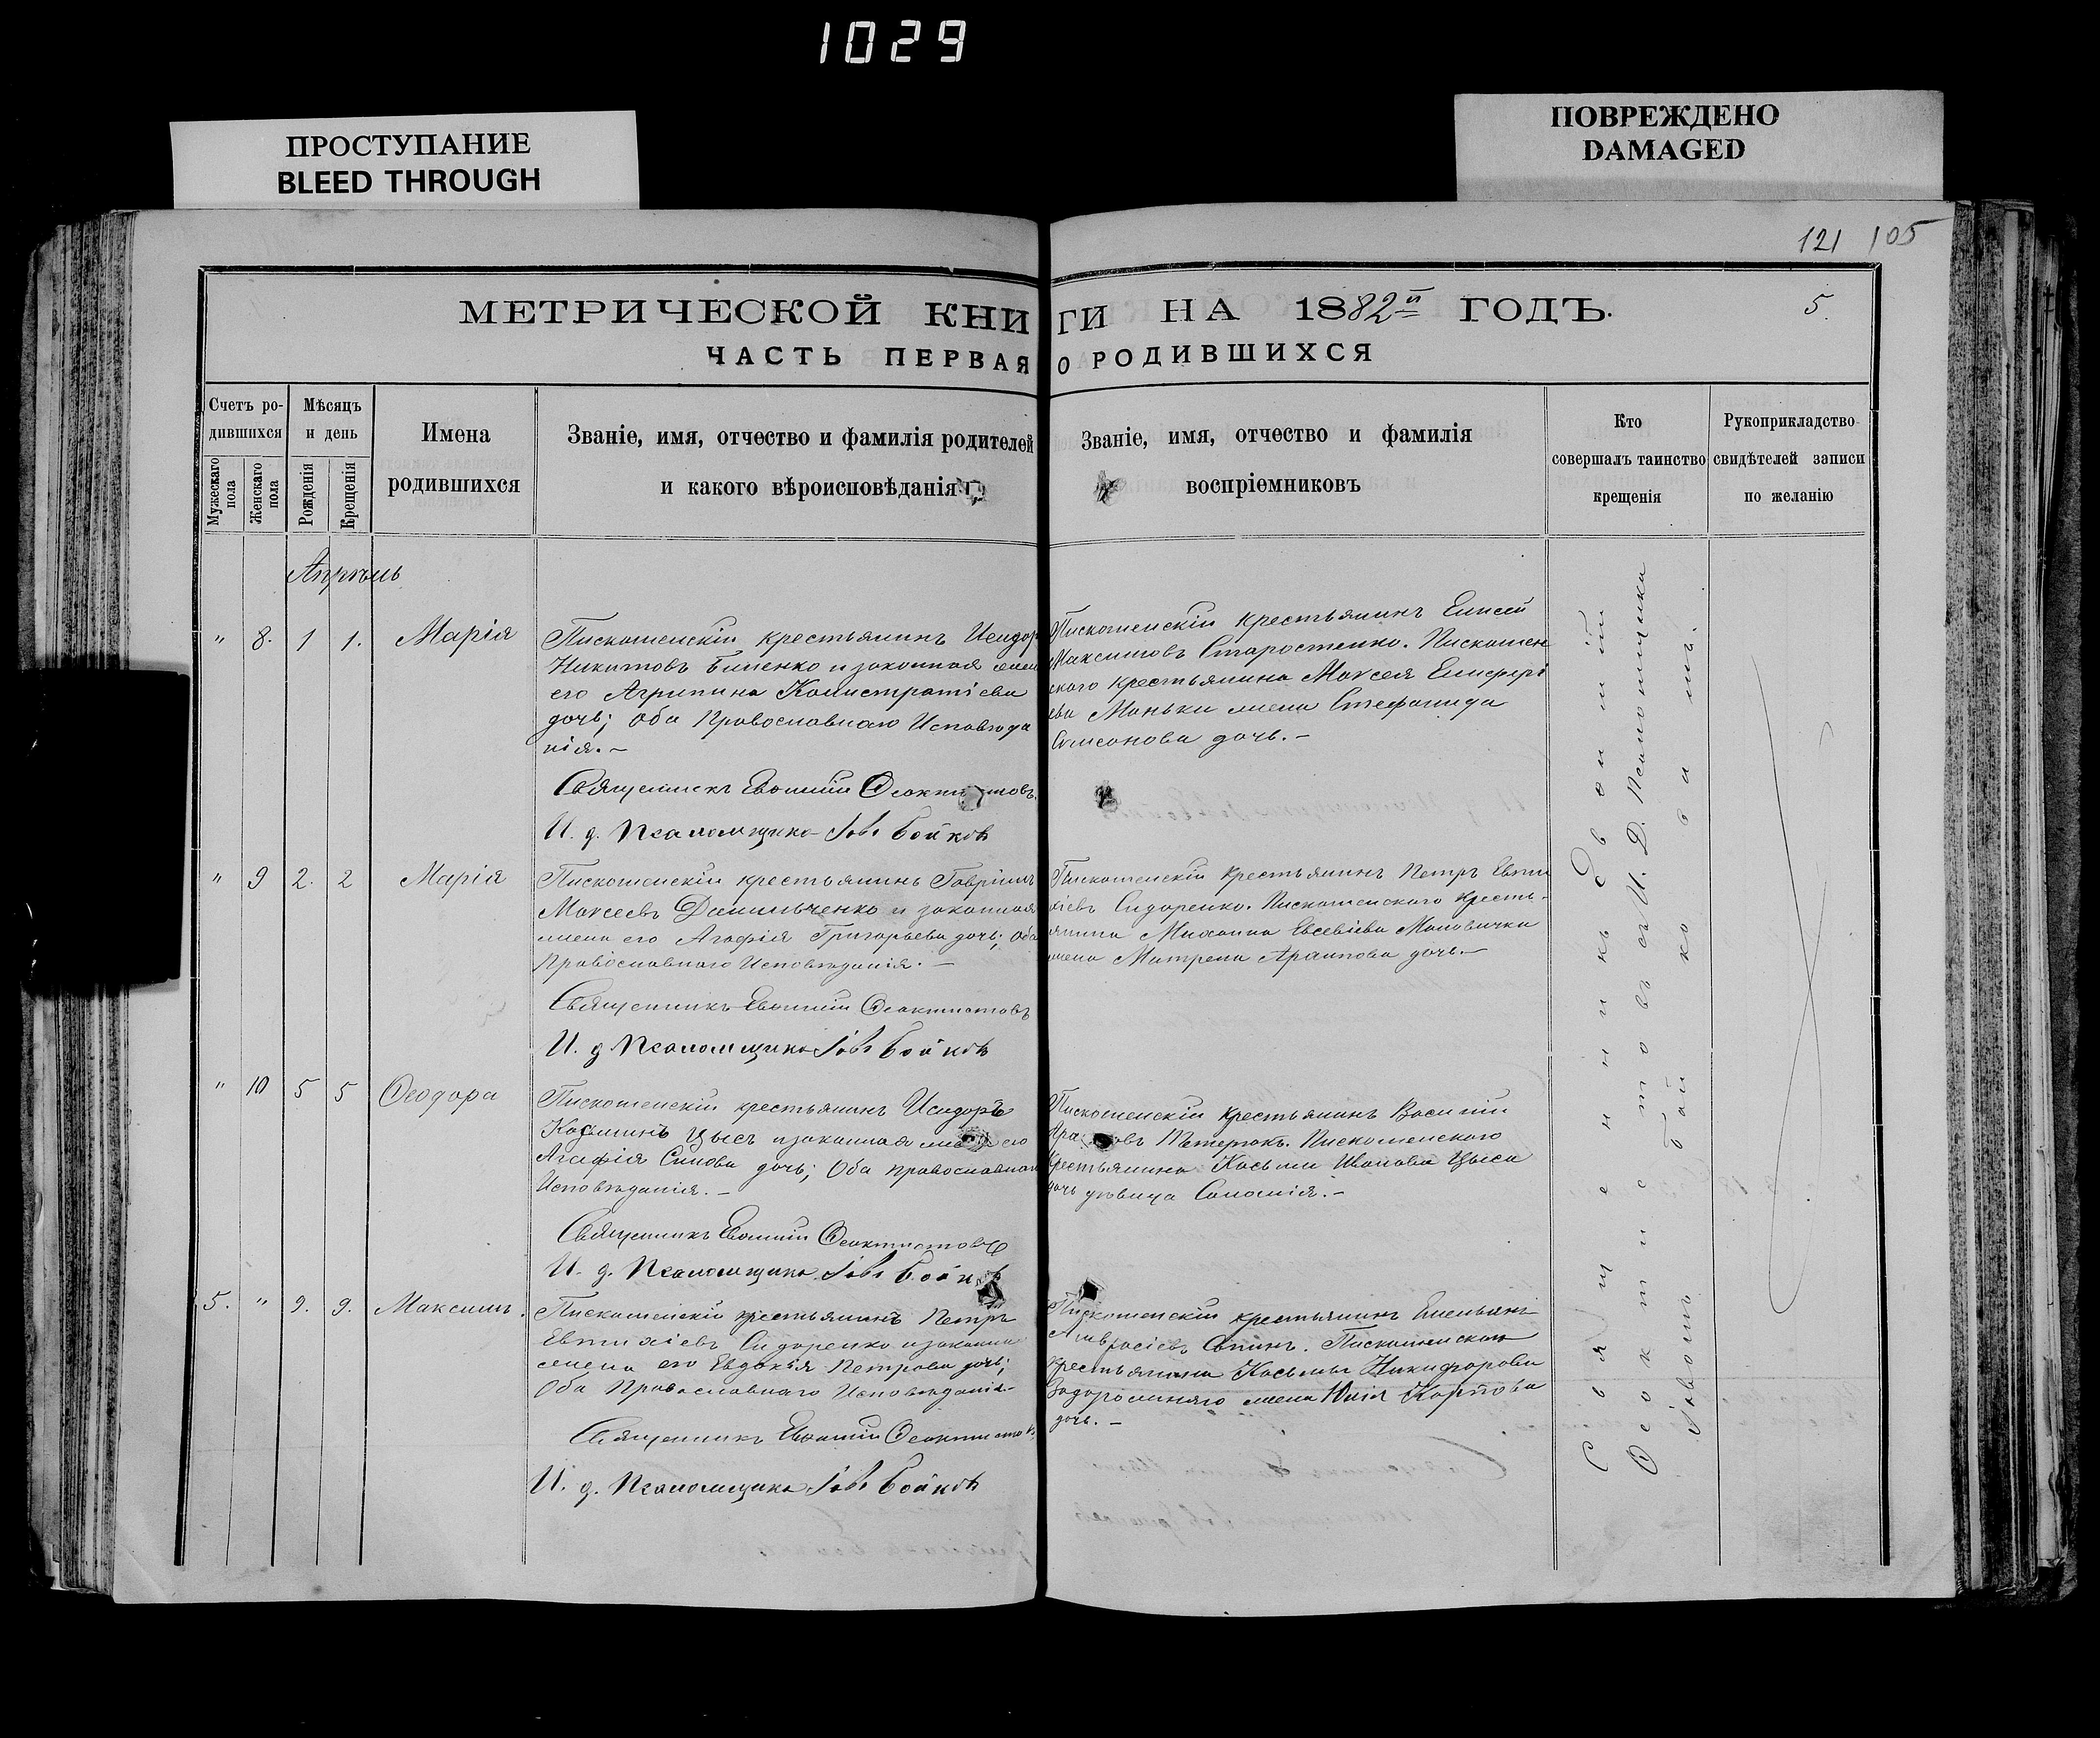 1029
ПРОСТУПАНИЕ
BLEED THROUGH
ПОВРЕЖДЕНО
DAMAGED
121 105
МЕТРИЧЕСКОЙ КНИГИ НА 1882й ГОДЪ.
5.
ЧАСТЬ ПЕРВАЯ О РОДИВШИХСЯ
Счетъ ро-
дившихся
Мужескаго пола
Женскаго пола
Мѣсяцъ
и день
Рожденія
Крещенія
Имена
родившихся
Званіе, имя, отчество и фамилія родителей
и какого вѣроисповѣданія
Званіе, имя, отчество и фамилія
воспріемниковъ
Кто
совершалъ таинство
крещенія
Рукоприкладство
свидѣтелей записи
по желанію
Апрѣль
" 8. 1 1. Марія
Пискошенскій крестьянинъ Исидор
Никитовъ Биленко и законная жен
его Агрипина Калистратіева
дочь; Оба Православнаго Исповѣда
нія. -
Священникъ Евѳимій Ѳеоктистовъ.
И. д. Псаломщика Іовъ Бойковъ
Пискошенскій крестьянинъ Елисей
Максимовъ Старостенко. Пискошен
скаго крестьянина Моксея Елифері
ева Маньки жена Стефанида
Симеонова дочь. -
" 9 2. 2 Марія
Пискошенскій крестьянинъ Гавріилъ
Моксеевъ Данильченко и законная
жена его Агафія Григорьева дочь; Оба
Православнаго Исповѣданія. -
Священникъ Евѳимій Ѳеоктистовъ
И. д. Псаломщика Іовъ Бойковъ
Пискошенскій крестьянинъ Петръ Евти
хіевъ Сидоренко. Пискошенскаго кресть-
янина Михаила Евсевіева Маловичка
жена Матрена Архипова дочь. -
" 10 5 5 Ѳеодора
Пискошенскій крестьянинъ Исидоръ
Козьминъ Цысь и законная жена его
Агафія Силова дочь; Оба православнаго
Исповѣданія. -
Священникъ Евѳимій Ѳеоктистовъ
И. д. Псаломщика Іовъ Бойковъ
Пискошенскій крестьянинъ Василій
Пискошенскаго
крестьянина Косьмы Иванова Цыса
дочь дѣвица Соломія. -
5. " 9. 9. Максимъ.
Пискошенскій крестьянинъ Петръ
Евтихіевъ Сидоренко и законная
жена его Евдокія Петрова дочь;
Оба Православнаго Исповѣданія.
Священникъ Евѳимій Ѳеоктистовъ
И. д. Псаломщика Іовъ Бойковъ
Пискошенскій крестьянинъ Емельянъ
Амвросіевъ Сопинъ. Пискошенскаго
крестьянина Косьмы Никифорова
жена Юлія Карпова
дочь. -
Священникъ Евѳимій
Ѳеоктистовъ съ И. Д. Псаломщика
Іовомъ Бойковимъ.